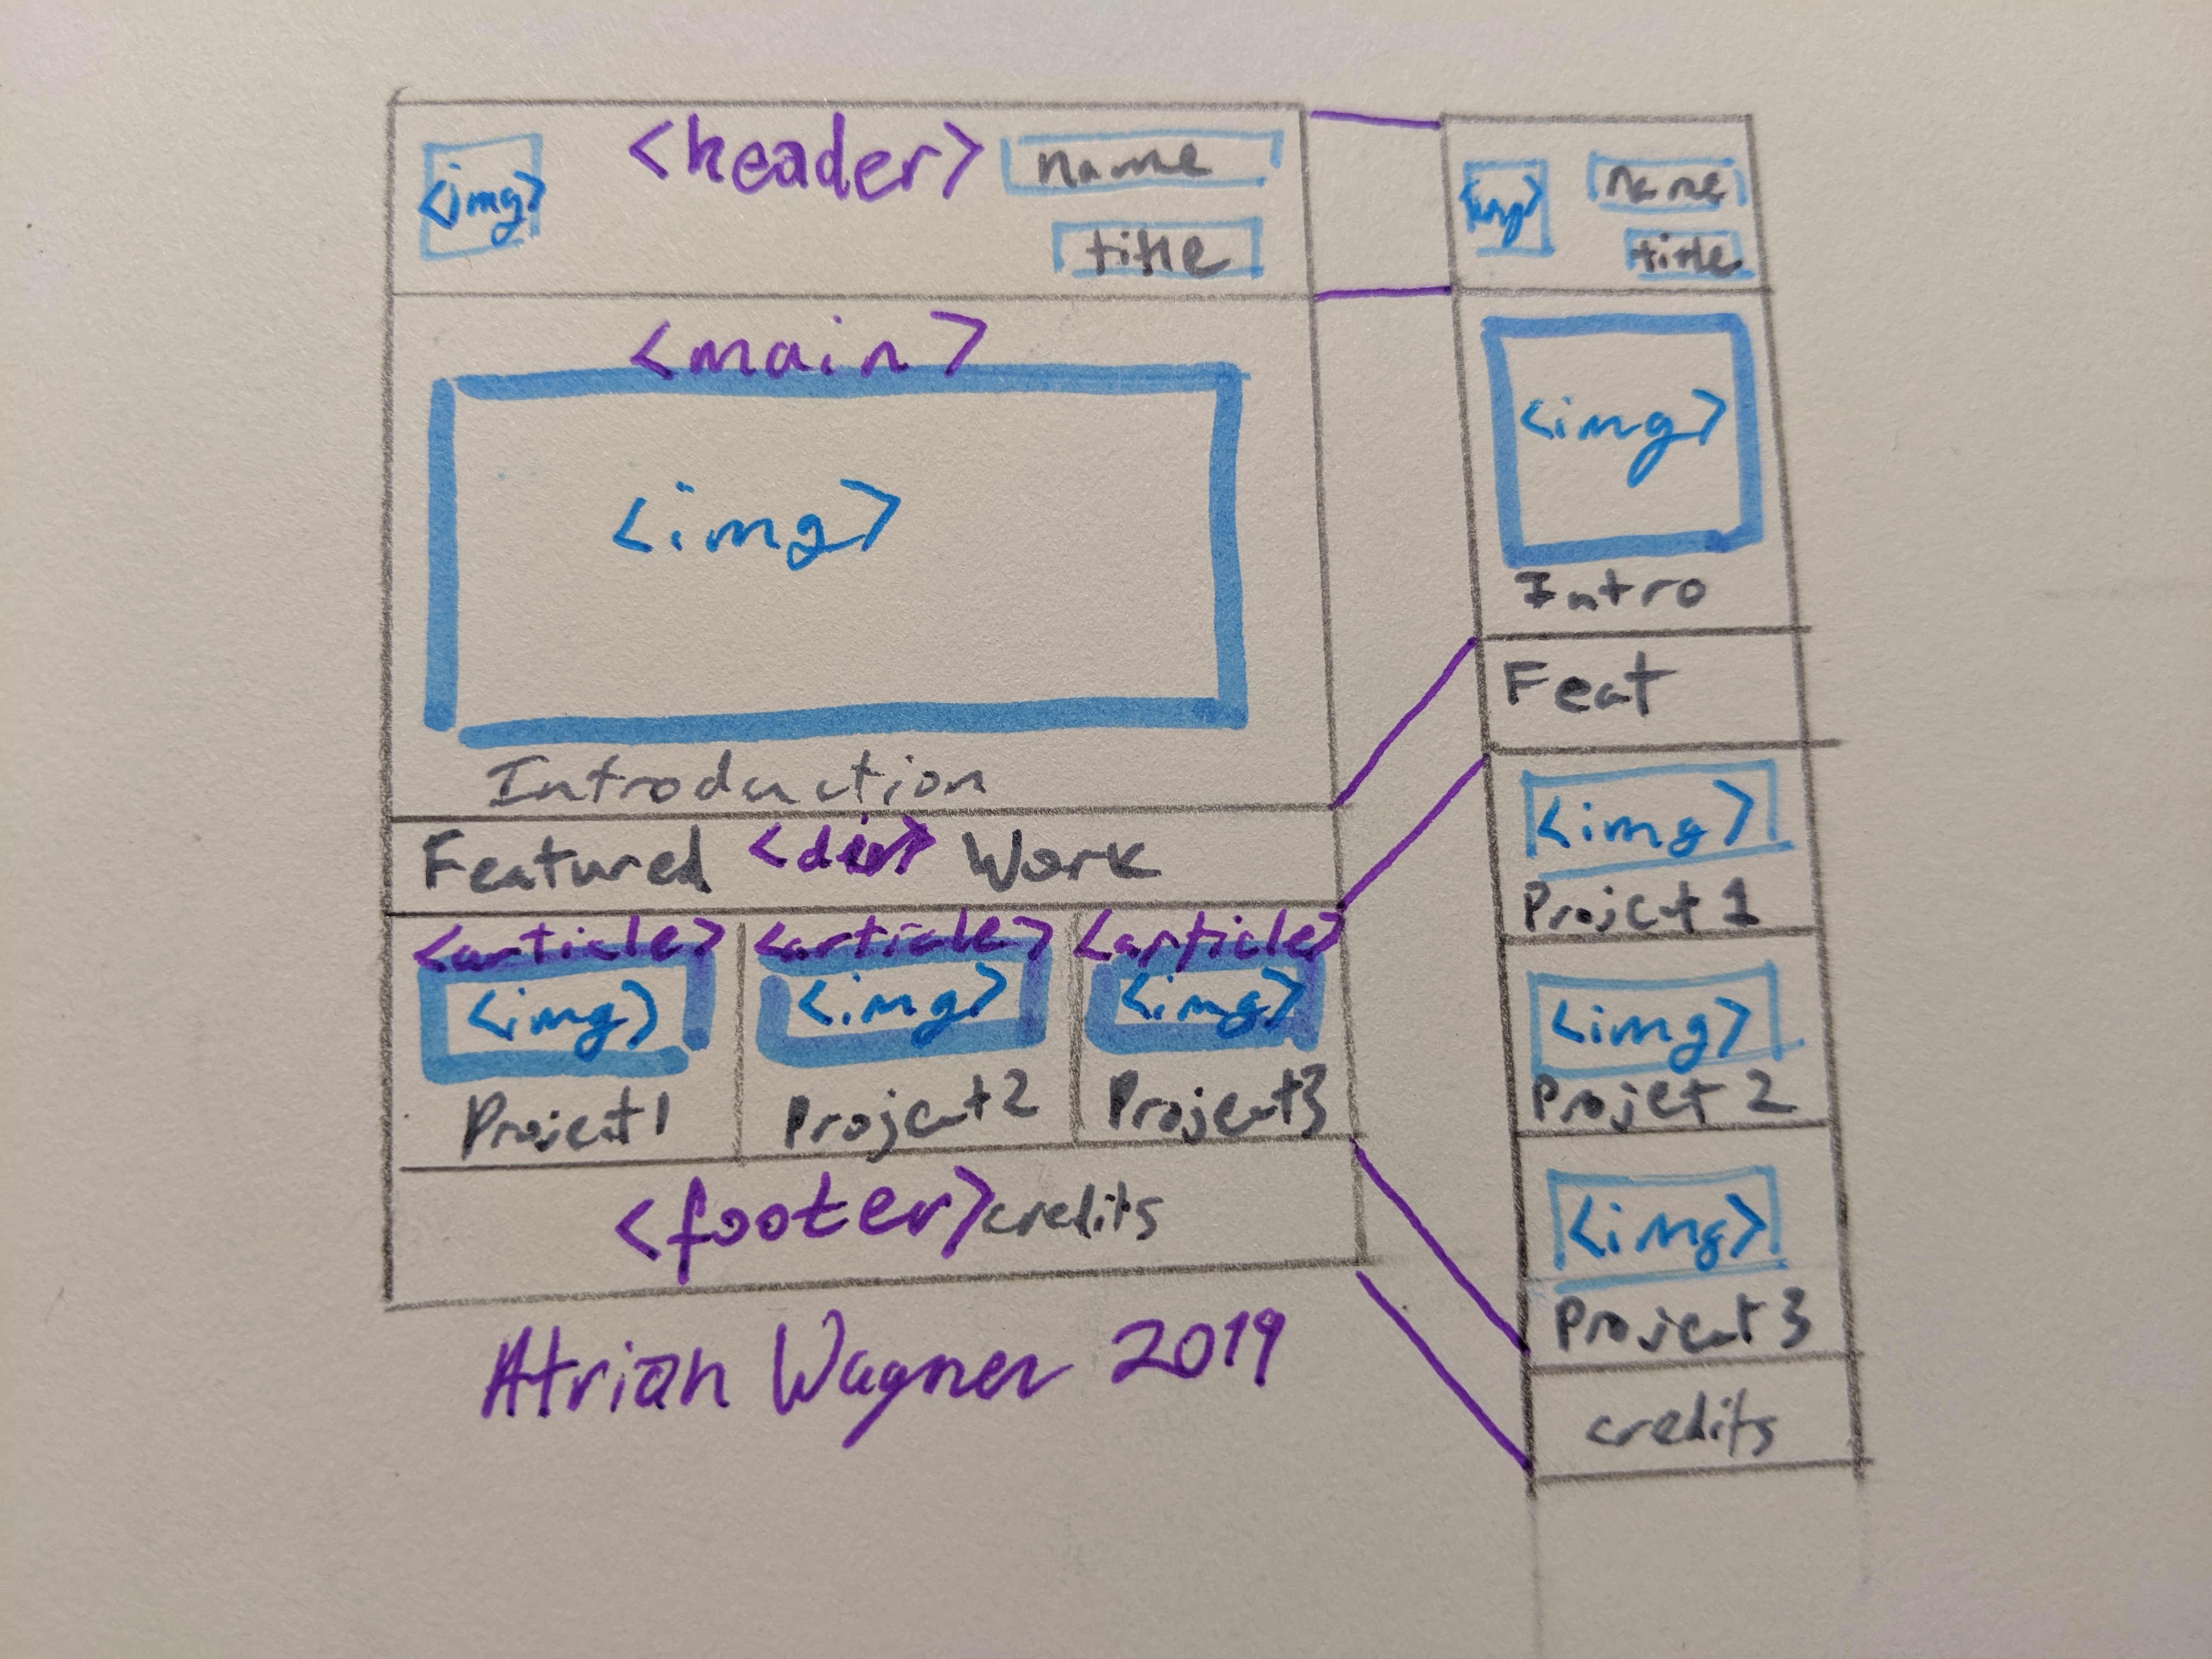 <header>
<img>
name
title
<main>
<img>
Introduction
Featured <div> Work
<article> <article> <article>
<img> <img> <img>
Project1 Project2 Project3
<footer> credits
Atrian Wagner 2019
<img>
name
title
<img>
Intro
Feat
<img>
Project 1
<img>
Projet 2
<img>
Project 3
credits